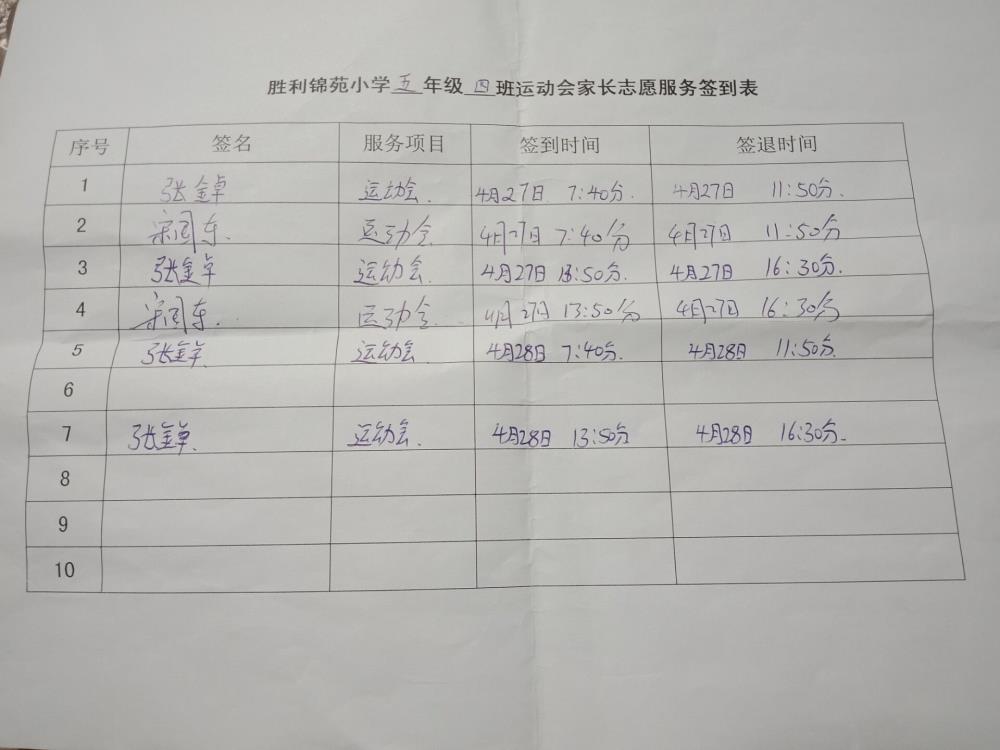 胜利锦苑小学五年级四班运动会家长志愿服务签到表
序号 签名 服务项目 签到时间 签退时间
1 张金卓 运动会. 4月27日 7:40分. 4月27日 11:50分.
2 宋国东. 运动会 4月27日 7:40分 4月27日 11:50分
3 张金卓 运动会. 4月27日 13:50分. 4月27日 16:30分.
4 宋国东. 运动会. 4月27日 13:50分 4月27日 16:30分
5 张金卓. 运动会. 4月28日 7:40分. 4月28日 11:50分.
6
7 张金卓. 运动会. 4月28日 13:50分 4月28日 16:30分.
8
9
10